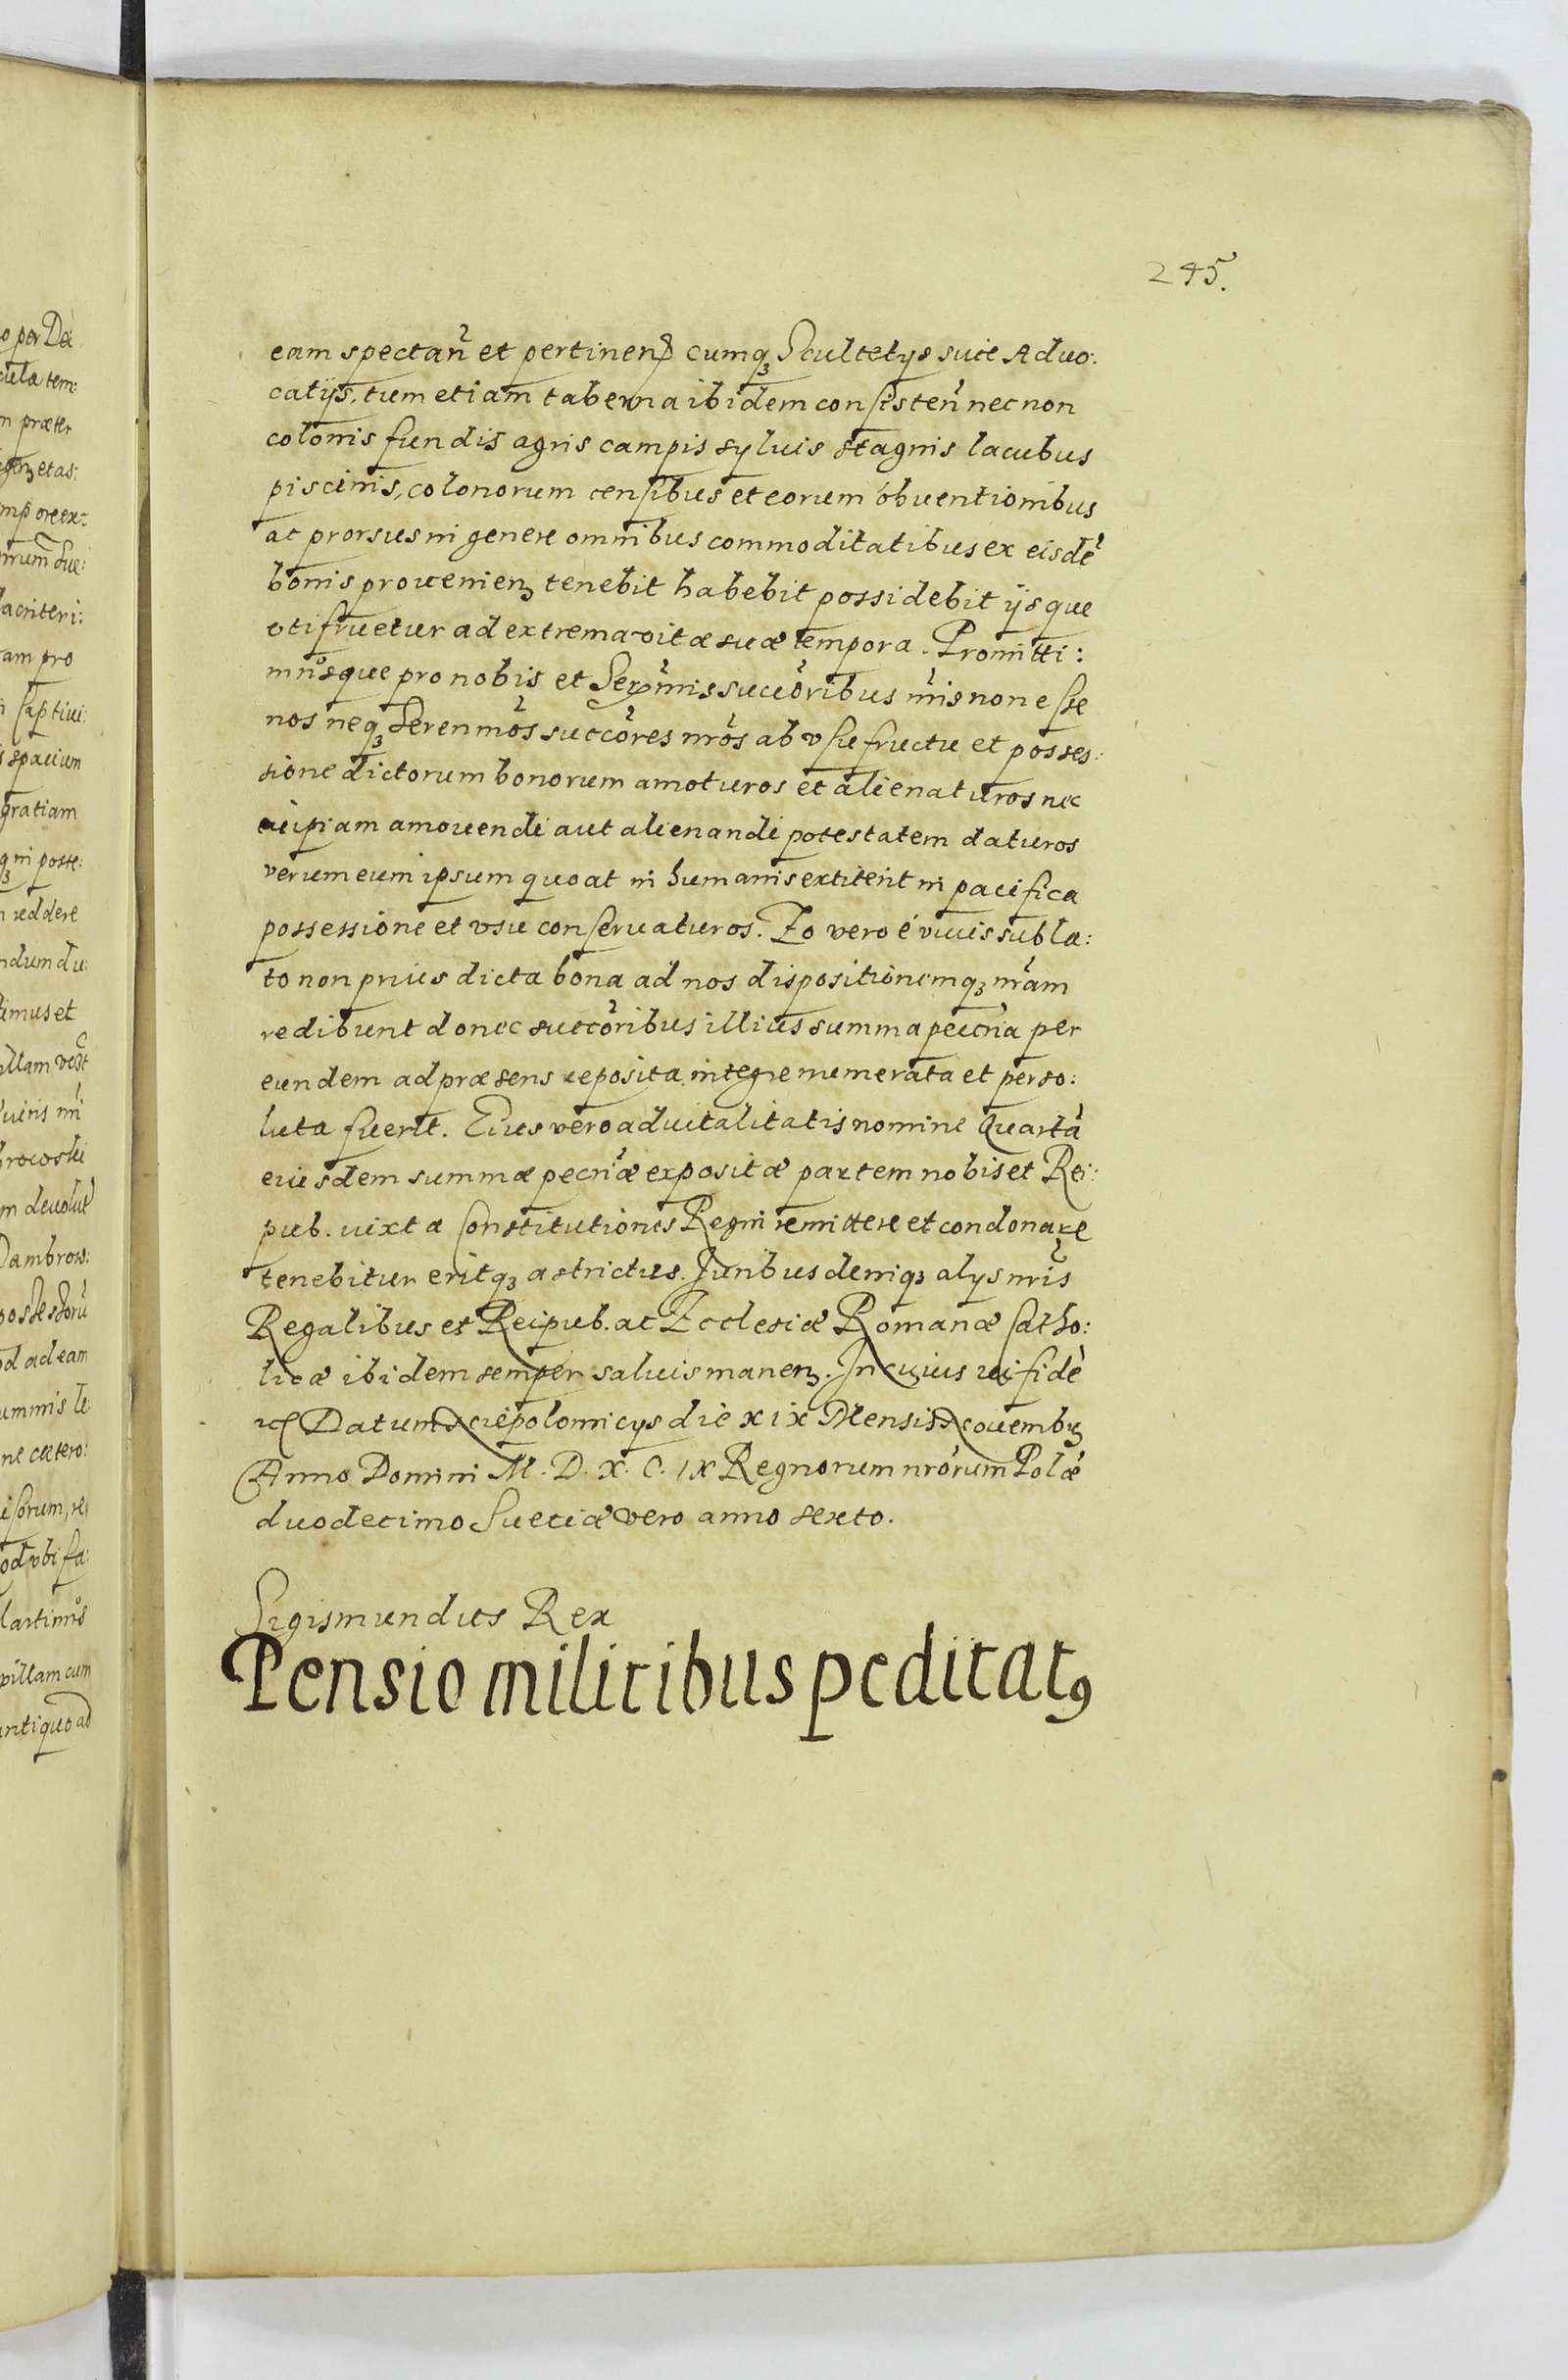 245.
eam spectañ et pertinen cumqꝫ Scultetys sive Advo:
catijs, tum etiam taberna ibidem consisteñ necnon
colonis fundis agris campis syluis stagnis lacubus
piscinis, colonorum censibus et eorum obuentionibus
ac prorsus in genere omnibus commoditatibus ex eisdē
bonis prouenienꝫ tenebit habebit possidebit ijsque
utifruetur ad extrema vitæ suæ tempora. Promitti:
musque pro nobis et Serm̄is succōribus nr̄is non esse
nos neqꝫ Serenmōs succōres nrōs ab vsufructu et posses:
sione dictorum bonorum amoturos et alienaturos nec
cuipiam amouendi aut alienandi potestatem daturos
verum eum ipsum quoat in humanis extiterit in pacifica
possessione et vsu conseruaturos. Eo vero é viuis subla:
to non prius dicta bona ad nos dispositionemqꝫ nr̄am
redibunt donec succōribus illius summa pecn̄ia per
eundem ad præsens reposita integre numerata et perso:
luta fuerit. Eius vero aduitalitatis nomine Quartā
eiusdem summæ pecn̄iæ expositæ partem nobis et Rei:
pub. iuxta Constitutiones Regni remittere et condonare
tenebitur eritqꝫ astrictus. Juribus deniqꝫ alys nr̄is
Regalibus et Reipub. ac Ecclesiæ Romanæ Catho:
licæ ibidem semper saluis manenꝫ. In cuius rei fidē
Datum Niepolomicys die xix Mensis Nouembꝫ
Anno Domini M. D. X. C. IX Regnorum nrōrum Polæ
duodecimo Sueciæ vero anno sexto.
Sigismundus Rex
Pensio militibus peditatꝰ
o per De
cula tem:
m præter
etas:
nrum Sue:
am pro
Captiui:
spacium
gratiam
qꝫ in posse:
reddere
ndum du:
imus et
illam
brocoski
m deuolut
Dambrow:
possessorū
od ad eam
ummis le
ne cætero:
isorum, re
od vbi fa:
Martinus
pillam cum
antiquo ad